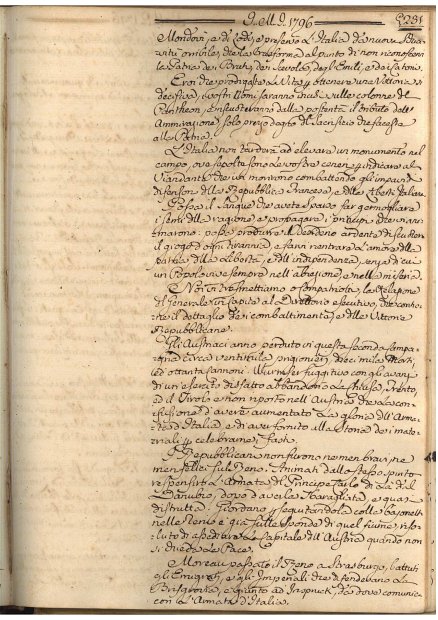 G. M. D. 1796
Mondovì, e di Lodi, e preservò l'Italia da nuova
la Patria dei Bruti, dei Scevola, degli Emili, e dei Catoni.
Eroi che prodigaste la Vita per ottenere una Vittoria sì
decisiva, i vostri Nomi saranno incisi sulle colonne del
Pantheon, e riscuoteranno dalla posterità il tributo dell'
Ammirazione, solo prezzo degno del Sacrificio che faceste
alla Patria.
L'Italia non tarderà ad elevare un monumento nel
campo, ove sepolte sono le vostre ceneri per indicare al
Viandante che ivi morirono combattendo gl'impavidi
difensori della Repubblica Francese, e della Libertà Italiana.
Possa il Sangue che avete sparso far germogliare
i semi della ragione, e propagare i principi che vi ani-
marono: possa produrre il desiderio ardente di scuotere
il giogo d'ogni tirannia, e far rientrare l'amore della
patria della Libertà, e dell'independenza, senza di cui
un Popolo vive sempre nell'abiezione, e nella miseria.
Noi vi trasmettiamo o compatrioti, la relazione
del Generale in Capite al Direttorio esecutivo, che contie-
ne il dettaglio dei combattimenti, e delle Vittorie
Repubblicane.
Gli Austriaci anno perduto in questa seconda campa-
gna circa ventitremila prigionieri, diecimila Morti,
ed ottanta Cannoni. Wurmser fuggitivo con gli avanzi
di un esercito disfatto abbandonò la Chiusa, Trento,
ed il Tirolo e non riportò nell'Austria che la con-
fusione d'avere aumentato la gloria dell'Arma-
ta d'Italia, e di aver fornito alla Storia dei mate-
riali per celebrarne i Fasti.
I Repubblicani non furono nemen bravi, ne
men felici sul Reno. Animati dallo stesso spirito
respinsero l'Armata del Principe Carlo di là dal
Danubio, dopo d'averla sbaragliata, e quasi
distrutta. Giordano inseguitandola colle bajonette
nelle Reni è già sulle sponde di quel fiume, riso-
luto di assediare la Capitale dell'Austria quando non
si chieda la Pace.
Moreau passato il Reno a Strasburgo, battuti
gli Emigrati, e gli Imperiali che difendevano la
Brisgovia, è giunto ad Inspruck, da dove comunica
con la Armata d'Italia.